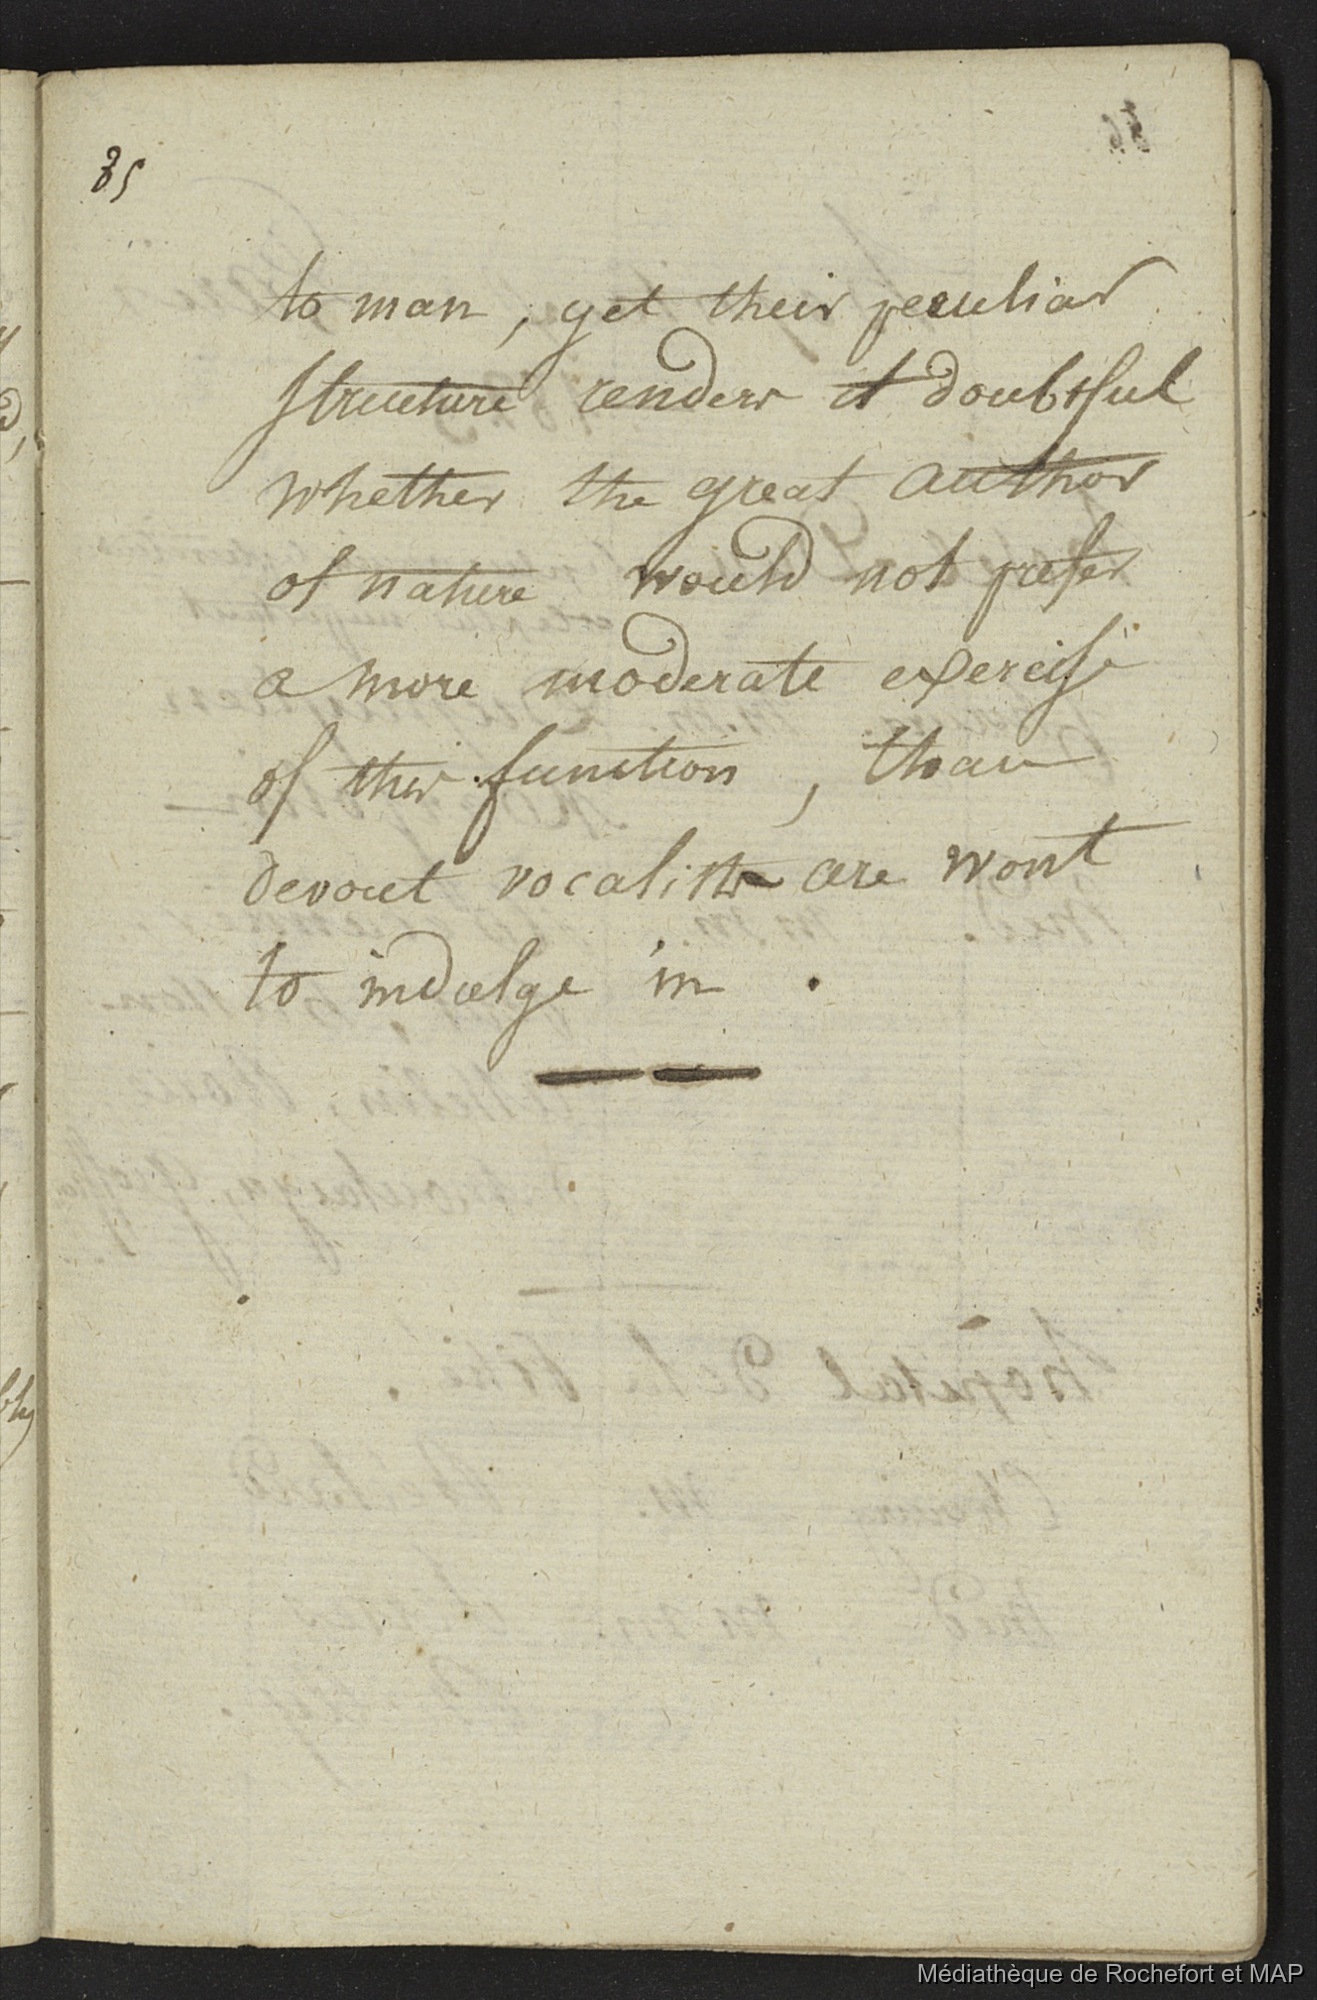 85
to man, yet their peculiar
structure renders it doubtful
whether the great author
of nature would not prefer
a more moderate exercise
of this function, than
devout vocalists are wont
to indulge in .
Médiathèque de Rochefort et MAP